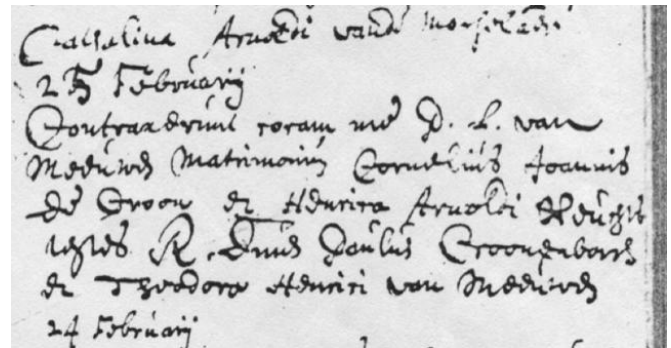 Cathalina Arnoldi vande Morselaer
25 Februarij
Contraxerunt coram me D. L. van
Meeuwen Matrimonium Cornelius Joannis
de Groon et Henrica Arnoldi
testes R. Dnus Paulus Croonenborch
et Theodora Henrici van Meeuwen
24 Februarij